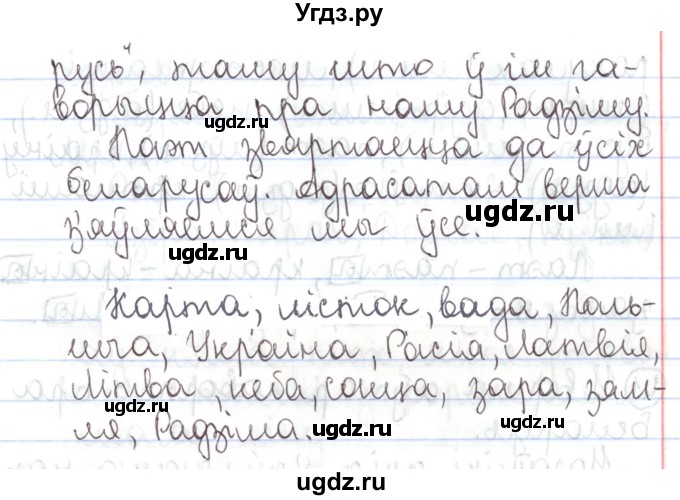 Угдз.ру
русь", таму што ў ім га-
ворыцца пра нашу Радзіму.
ugdz.ru
ugdz.ru
Паэт звяртаецца да ўсіх
беларусаў. Адрасатам верша
ugdz.ru
з'яўляемся мы ўсе.
ugdz.ru
Карта, лісток, вада, Поль-
шча, Украіна, Расія, Латвія,
Літва, неба, сонца, зара, зям-
ugdz.ru
ля, Радзіма.
ugdz.ru
ugdz.ru
ugdz.ru